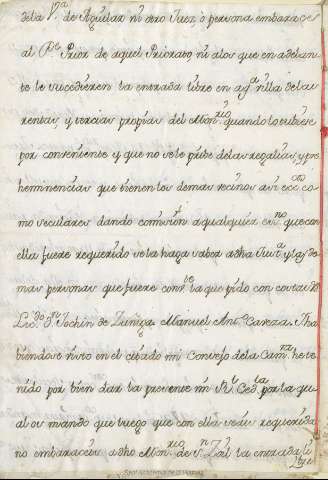 dela V.ª de Aguilar ni otro Juez ò persona embaraces
al P.e Prior de aquel Priorato ni alos que en adelan
te le sucedieren la entrada libre en aq.ª villa de las
rentas, y tercias propias del Mon.rio quando lo tubiere
por conveniente y que no se le pribe delas regalias, y pre
heminencias que tienen los demas vecinos asi ecc.cos co
mo seculares dando comision a qualquier ess.no que con
ella fuere requerido se la haga saber adha Just.a y las de
mas personas que fuere conv.te la que pido con costas &.
Lic.do D.n Jochin de Zuñiga Manuel Ant.o Careza. Tha
biendose visto en el citado mi Consejo dela Cam.ra he te
nido por bien dar la presente mi R.l Ced.la por la qu
al os mando que luego que con ella seais requerida
no embaraceis adho Mon.rio de S.n Zoil la entrada li
bre